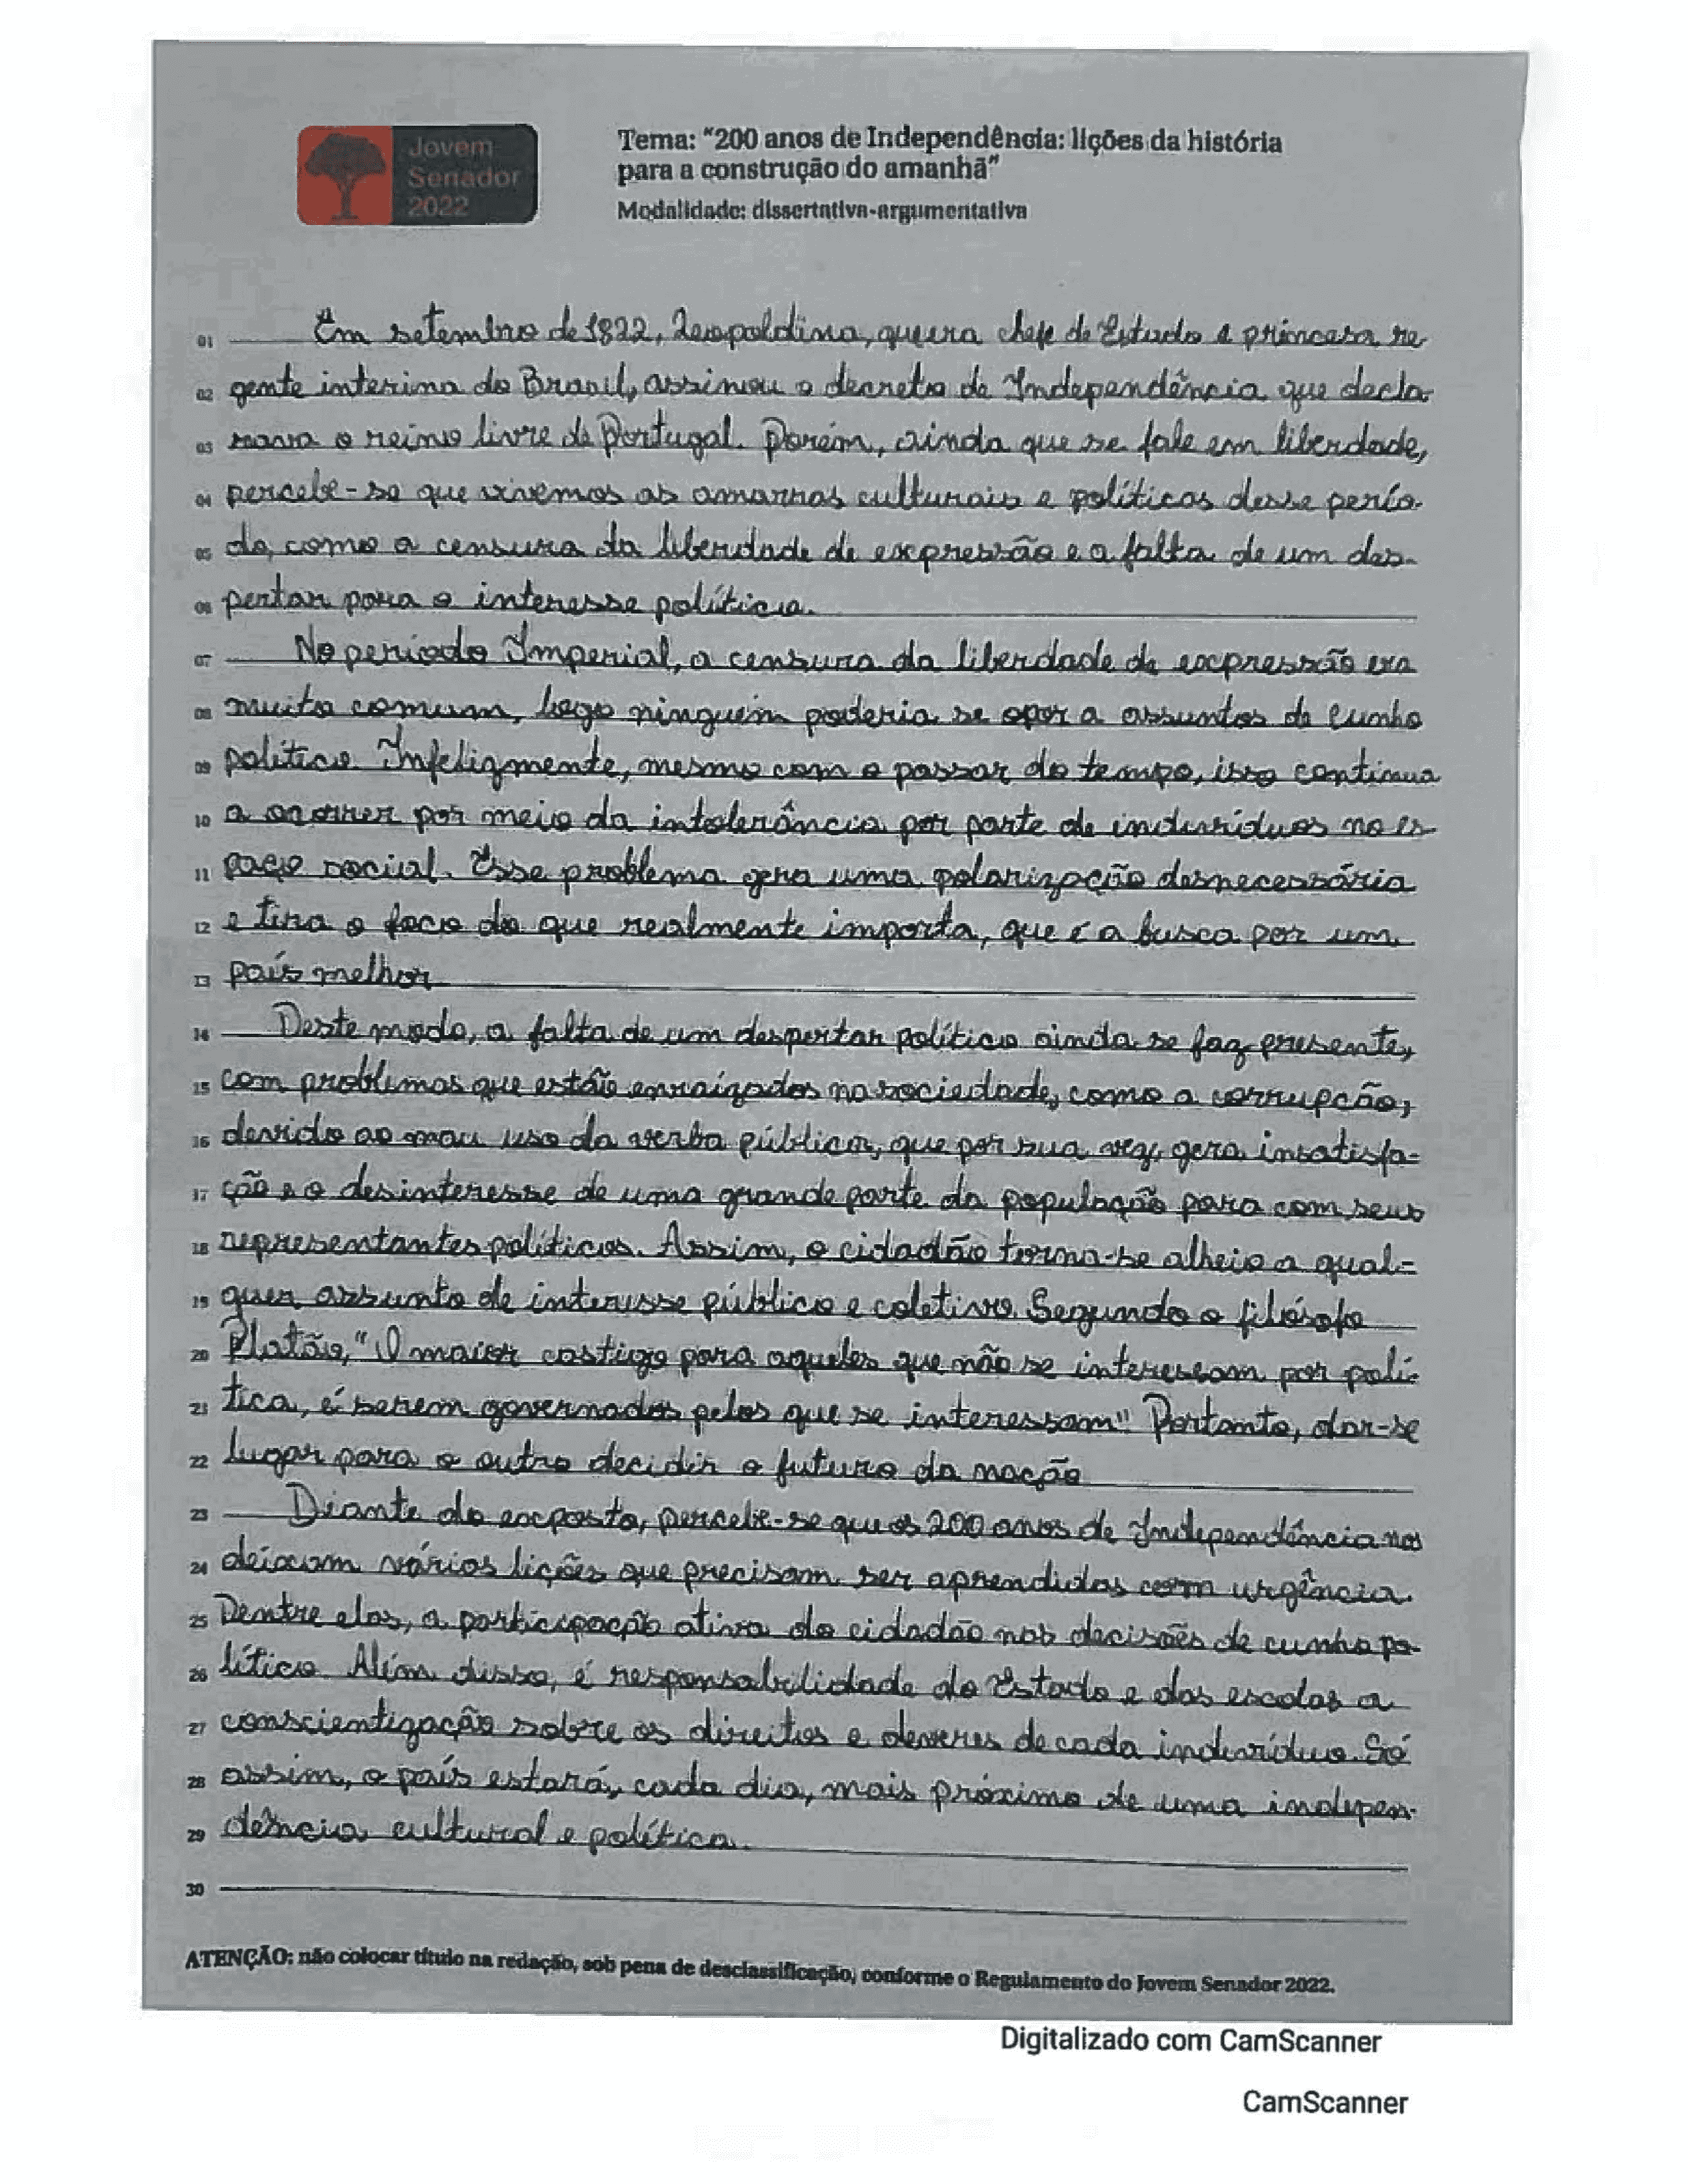 Jovem
Senador
2022
Tema: "200 anos de Independência: lições da história
para a construção do amanhã"
Modalidade: dissertativa-argumentativa
01 Em setembro de 1822, Leopoldina, que era chefe de Estado e princesa re
02 gente interina do Brasil, assinou o decreto de Independência que decla
03 rava o reino livre de Portugal. Porém, ainda que se fale em liberdade,
04 percebe-se que vivemos as amarras culturais e políticas desse perío-
05 do, como a censura da liberdade de expressão e a falta de um des-
06 pertar para o interesse político.
07 No período Imperial, a censura da liberdade de expressão era
08 muito comum, logo ninguém poderia se opor a assuntos de cunho
09 político. Infelizmente, mesmo com o passar do tempo, isso continua
10 a ocorrer por meio da intolerância por parte de indivíduos no es-
11 paço social. Esse problema gera uma polarização desnecessária
12 e tira o foco do que realmente importa, que é a busca por um
13 país melhor
14 Deste modo, a falta de um despertar político ainda se faz presente,
15 com problemas que estão enraizados na sociedade, como a corrupção,
16 devido ao mau uso da verba pública, que por sua vez, gera insatisfa-
17 ção e o desinteresse de uma grande parte da população para com seus
18 representantes políticos. Assim, o cidadão torna-se alheio a qual-
19 quer assunto de interesse público e coletivo. Segundo o filósofo
20 Platão, "O maior castigo para aqueles que não se interessam por polí-
21 tica, é serem governados pelos que se interessam". Portanto, dar-se
22 lugar para o outro decidir o futuro da nação
23 Diante do exposto, percebe-se que os 200 anos de Independência nos
24 deixam vários lições que precisam ser aprendidas com urgência.
25 Dentre elas, a participação ativa do cidadão nas decisões de cunho po-
26 lítico. Além disso, é responsabilidade do Estado e das escolas a
27 conscientização sobre os direitos e deveres de cada indivíduo. Só
28 assim, o país estará, cada dia, mais próximo de uma indepen-
29 dência cultural e política.
30
ATENÇÃO: não colocar título na redação, sob pena de desclassificação, conforme o Regulamento do Jovem Senador 2022.
Digitalizado com CamScanner
CamScanner